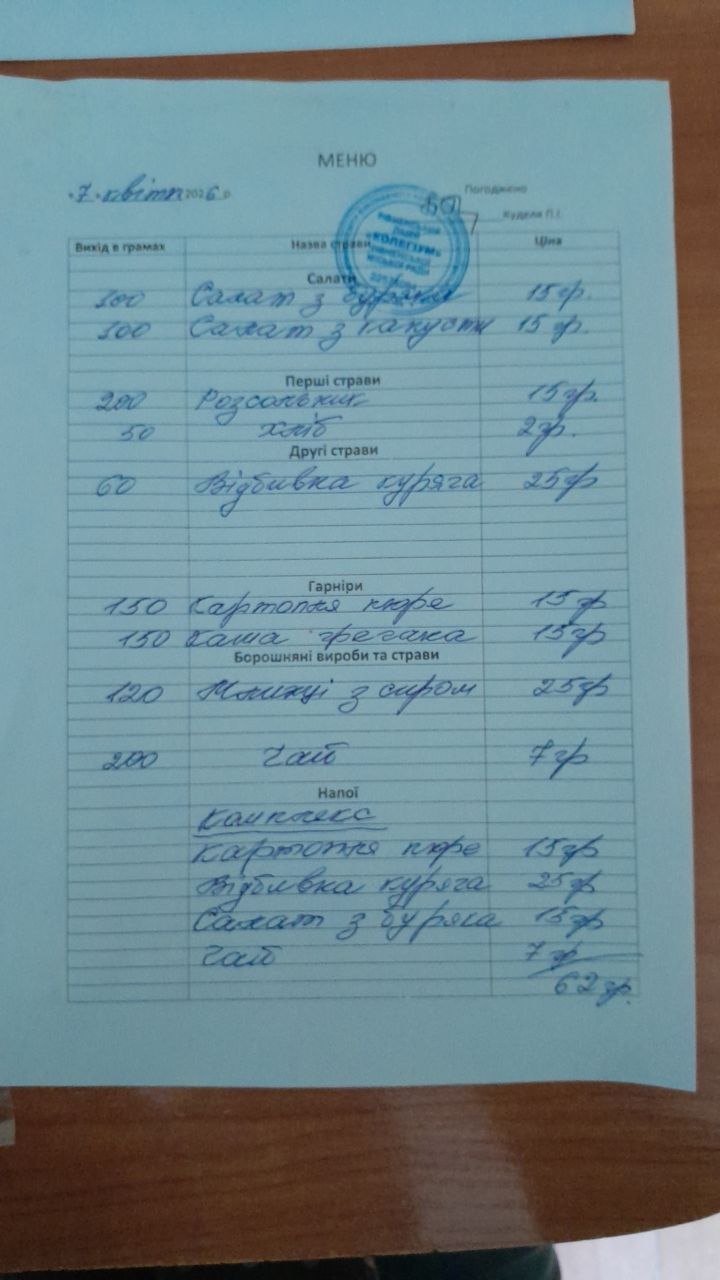 МЕНЮ
"7" квітня 2026 р.
Погоджено
Куделя П.І.
"КОЛЕГІУМ"
Вихід в грамах Назва страви Ціна
Салати
100 Салат з буряка 15 гр.
100 Салат з капусти 15 гр.
Перші страви
200 Розсольник 15 гр.
50 хліб 2 гр.
Другі страви
60 Відбивка куряча 25 гр
Гарніри
150 Картопля пюре 15 гр
150 Каша гречана 15 гр
Борошняні вироби та страви
120 Млинці з сиром 25 гр
200 Чай 7 гр
Напої
Комплекс
Картопля пюре 15 гр
Відбивка куряча 25 гр
Салат з буряка 15 гр
Чай 7 гр
62 гр.